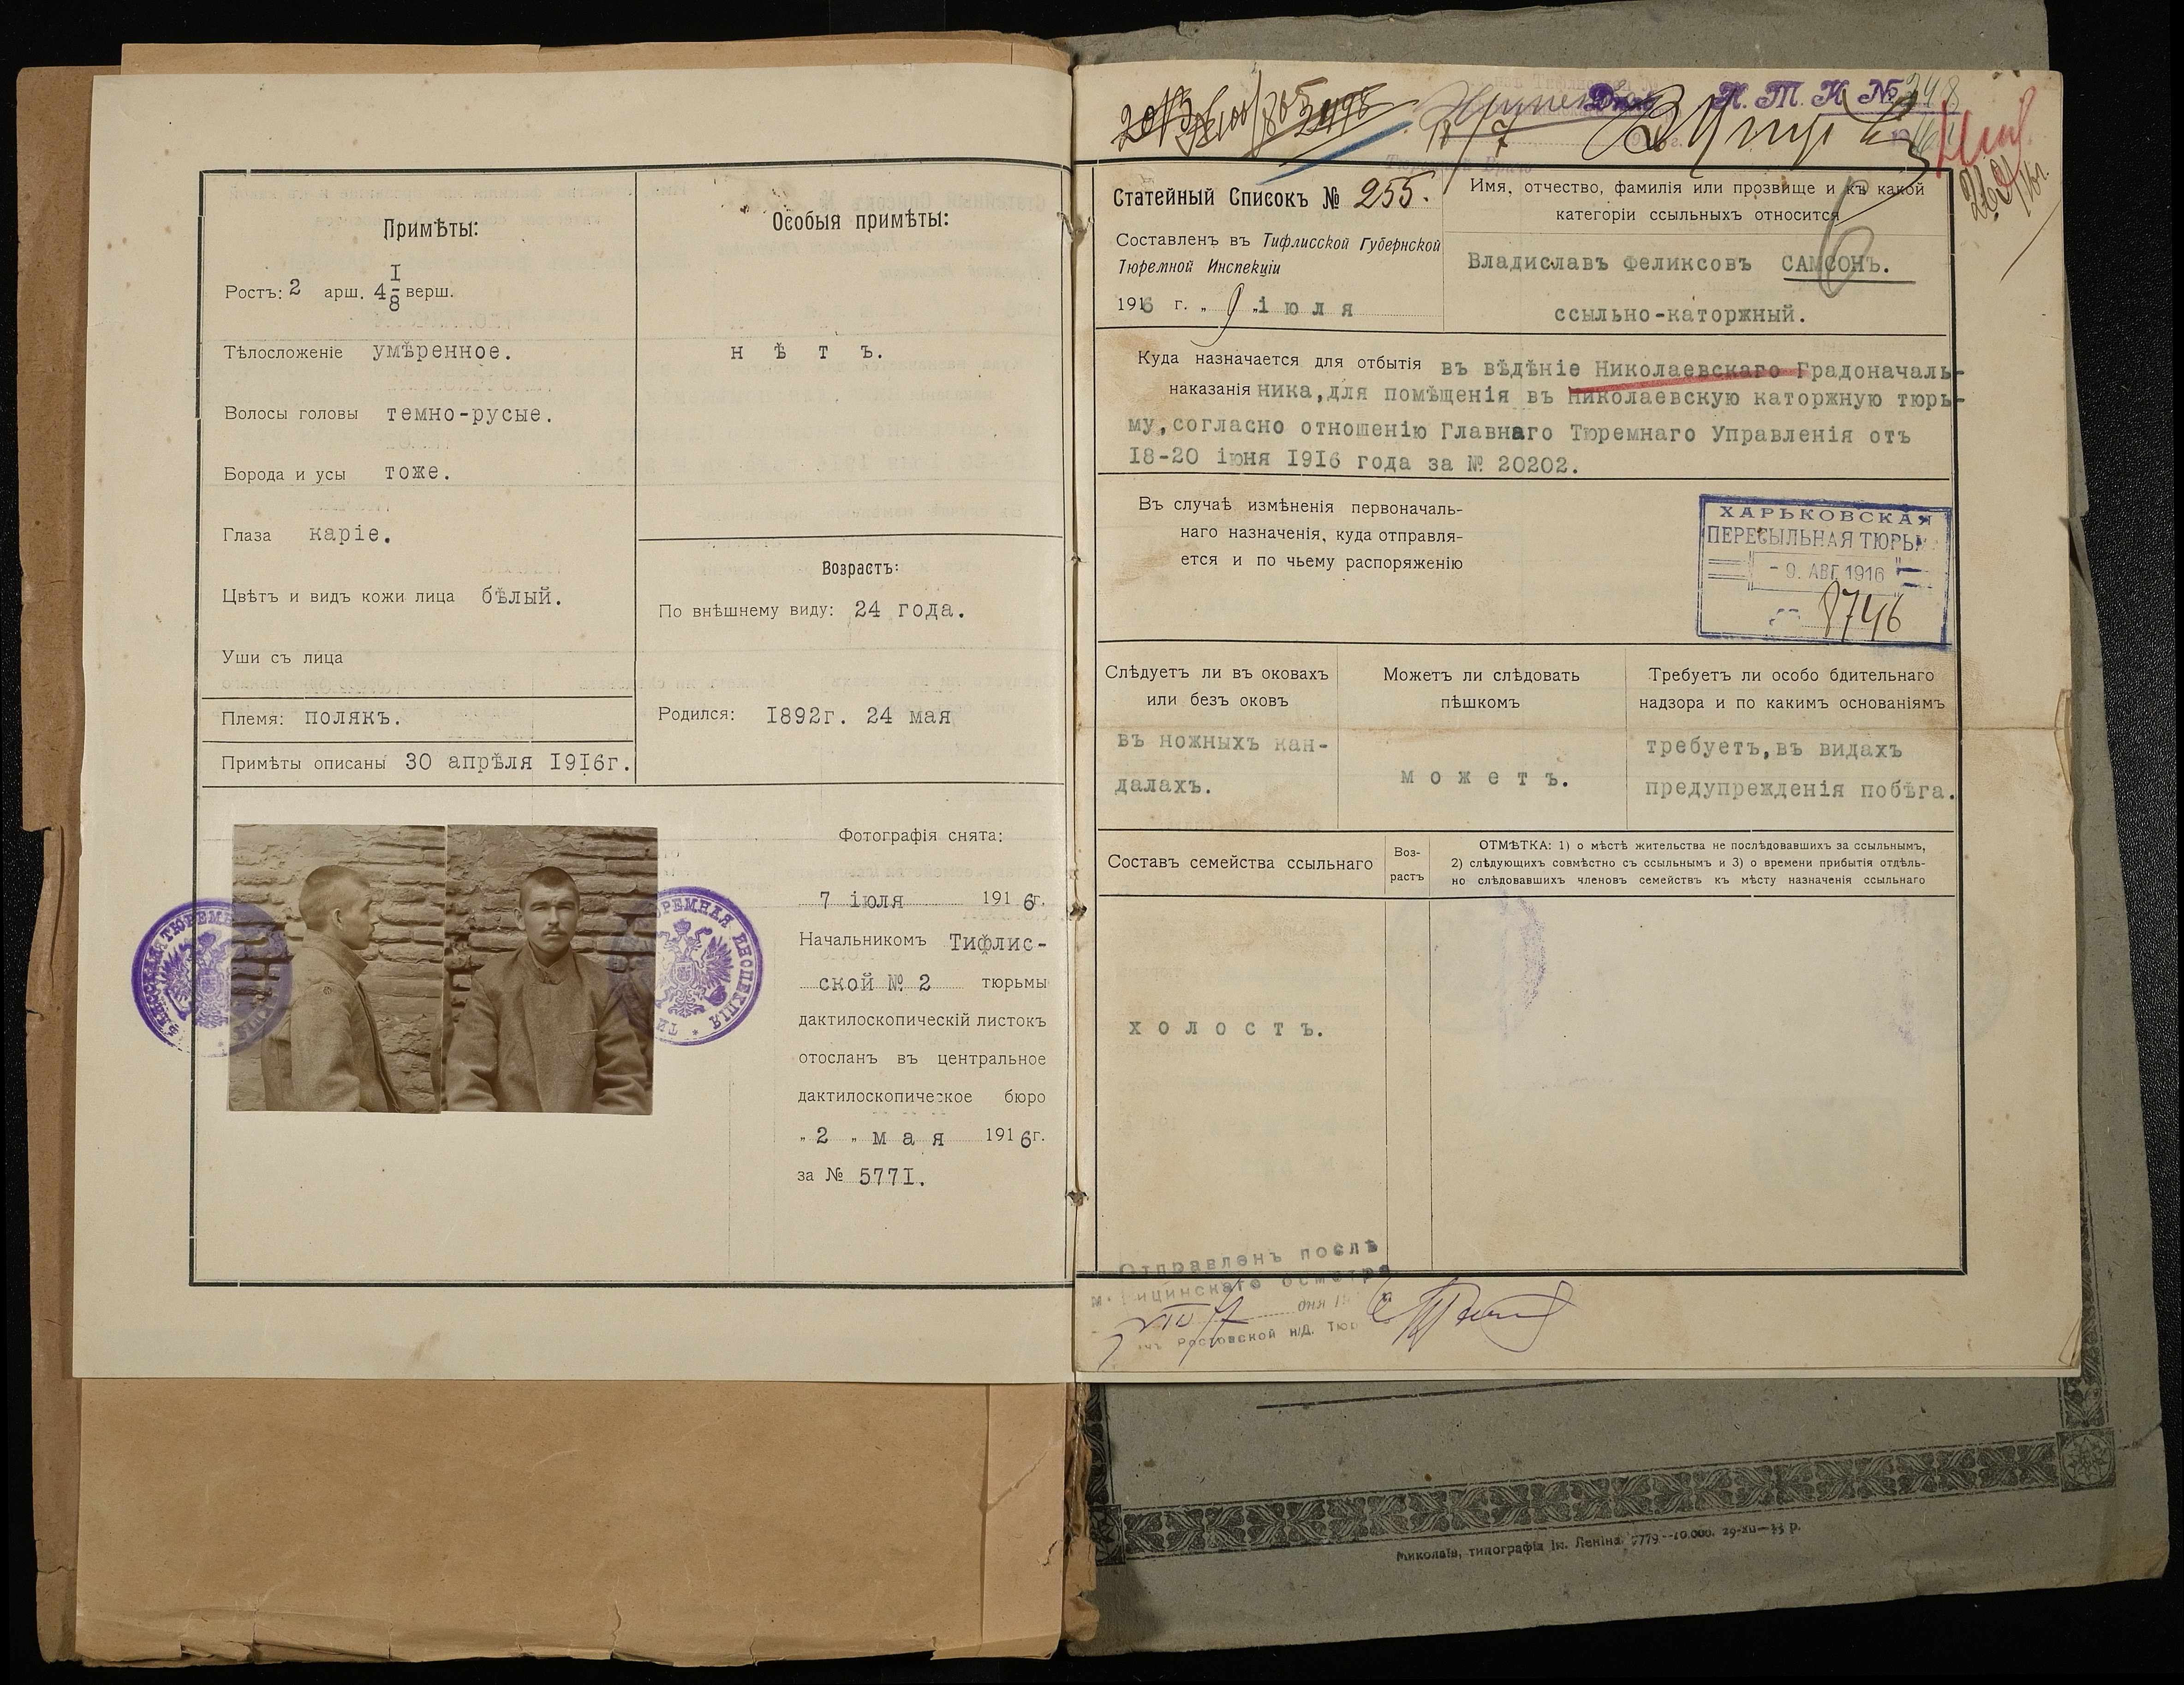 Примѣты:
Ростъ: 2 арш. 4 I/8 верш.
Тѣлосложеніе умѣренное.
Волосы головы темно-русые.
Борода и усы тоже.
Глаза каріе.
Цвѣтъ и видъ кожи лица бѣлый.
Уши съ лица
Племя: полякъ.
Примѣты описаны 30 апрѣля I9I6г.
Особыя примѣты:
нѣтъ.
Возрастъ:
По внѣшнему виду: 24 года.
Родился: I892г. 24 мая
Фотографія снята:
7 іюля 1916г.
Начальникомъ Тифлис-
ской № 2 тюрьмы
дактилоскопическій листокъ
отосланъ въ центральное
дактилоскопическое бюро
„2„ мая 1916г.
за № 577I.
ТЮРЕМНАЯ ИНСПЕКЦІЯ
Н. Т. К №
Статейный Списокъ № 255.
Составленъ въ Тифлисской Губернской
Тюремной Инспекціи
1916 г. „ 9 „ іюля
Имя, отчество, фамилія или прозвище и къ какой
категоріи ссыльныхъ относится
Владиславъ Феликсовъ САМСОНЪ.
ссыльно-каторжный.
Куда назначается для отбытія въ вѣдѣніе Николаевскаго Градоначаль-
наказанія ника,для помѣщенія въ Николаевскую каторжную тюрь-
му,согласно отношенію Главнаго Тюремнаго Управленія отъ
I8-20 іюня I9I6 года за № 20202.
Въ случаѣ измѣненія первоначаль-
наго назначенія, куда отправля-
ется и по чьему распоряженію
ХАРЬКОВСКАЯ
ПЕРЕСЫЛЬНАЯ ТЮРЬМ
- 9. АВГ 1916
8746
Слѣдуетъ ли въ оковахъ
или безъ оковъ
въ ножныхъ кан-
далахъ.
Можетъ ли слѣдовать
пѣшкомъ
можетъ.
Требуетъ ли особо бдительнаго
надзора и по какимъ основаніямъ
требуетъ,въ видахъ
предупрежденія побѣга.
Составъ семейства ссыльнаго
Воз-
растъ
ОТМѢТКА: 1) о мѣстѣ жительства не послѣдовавшихъ за ссыльнымъ,
2) слѣдующихъ совмѣстно съ ссыльнымъ и 3) о времени прибытія отдѣль-
но слѣдовавшихъ членовъ семействъ къ мѣсту назначенія ссыльнаго
холостъ.
Отправленъ послѣ
медицинскаго осмотра
дня
Ростовской н/Д. Тюр
Миколаїв, типографія ім. Леніна.